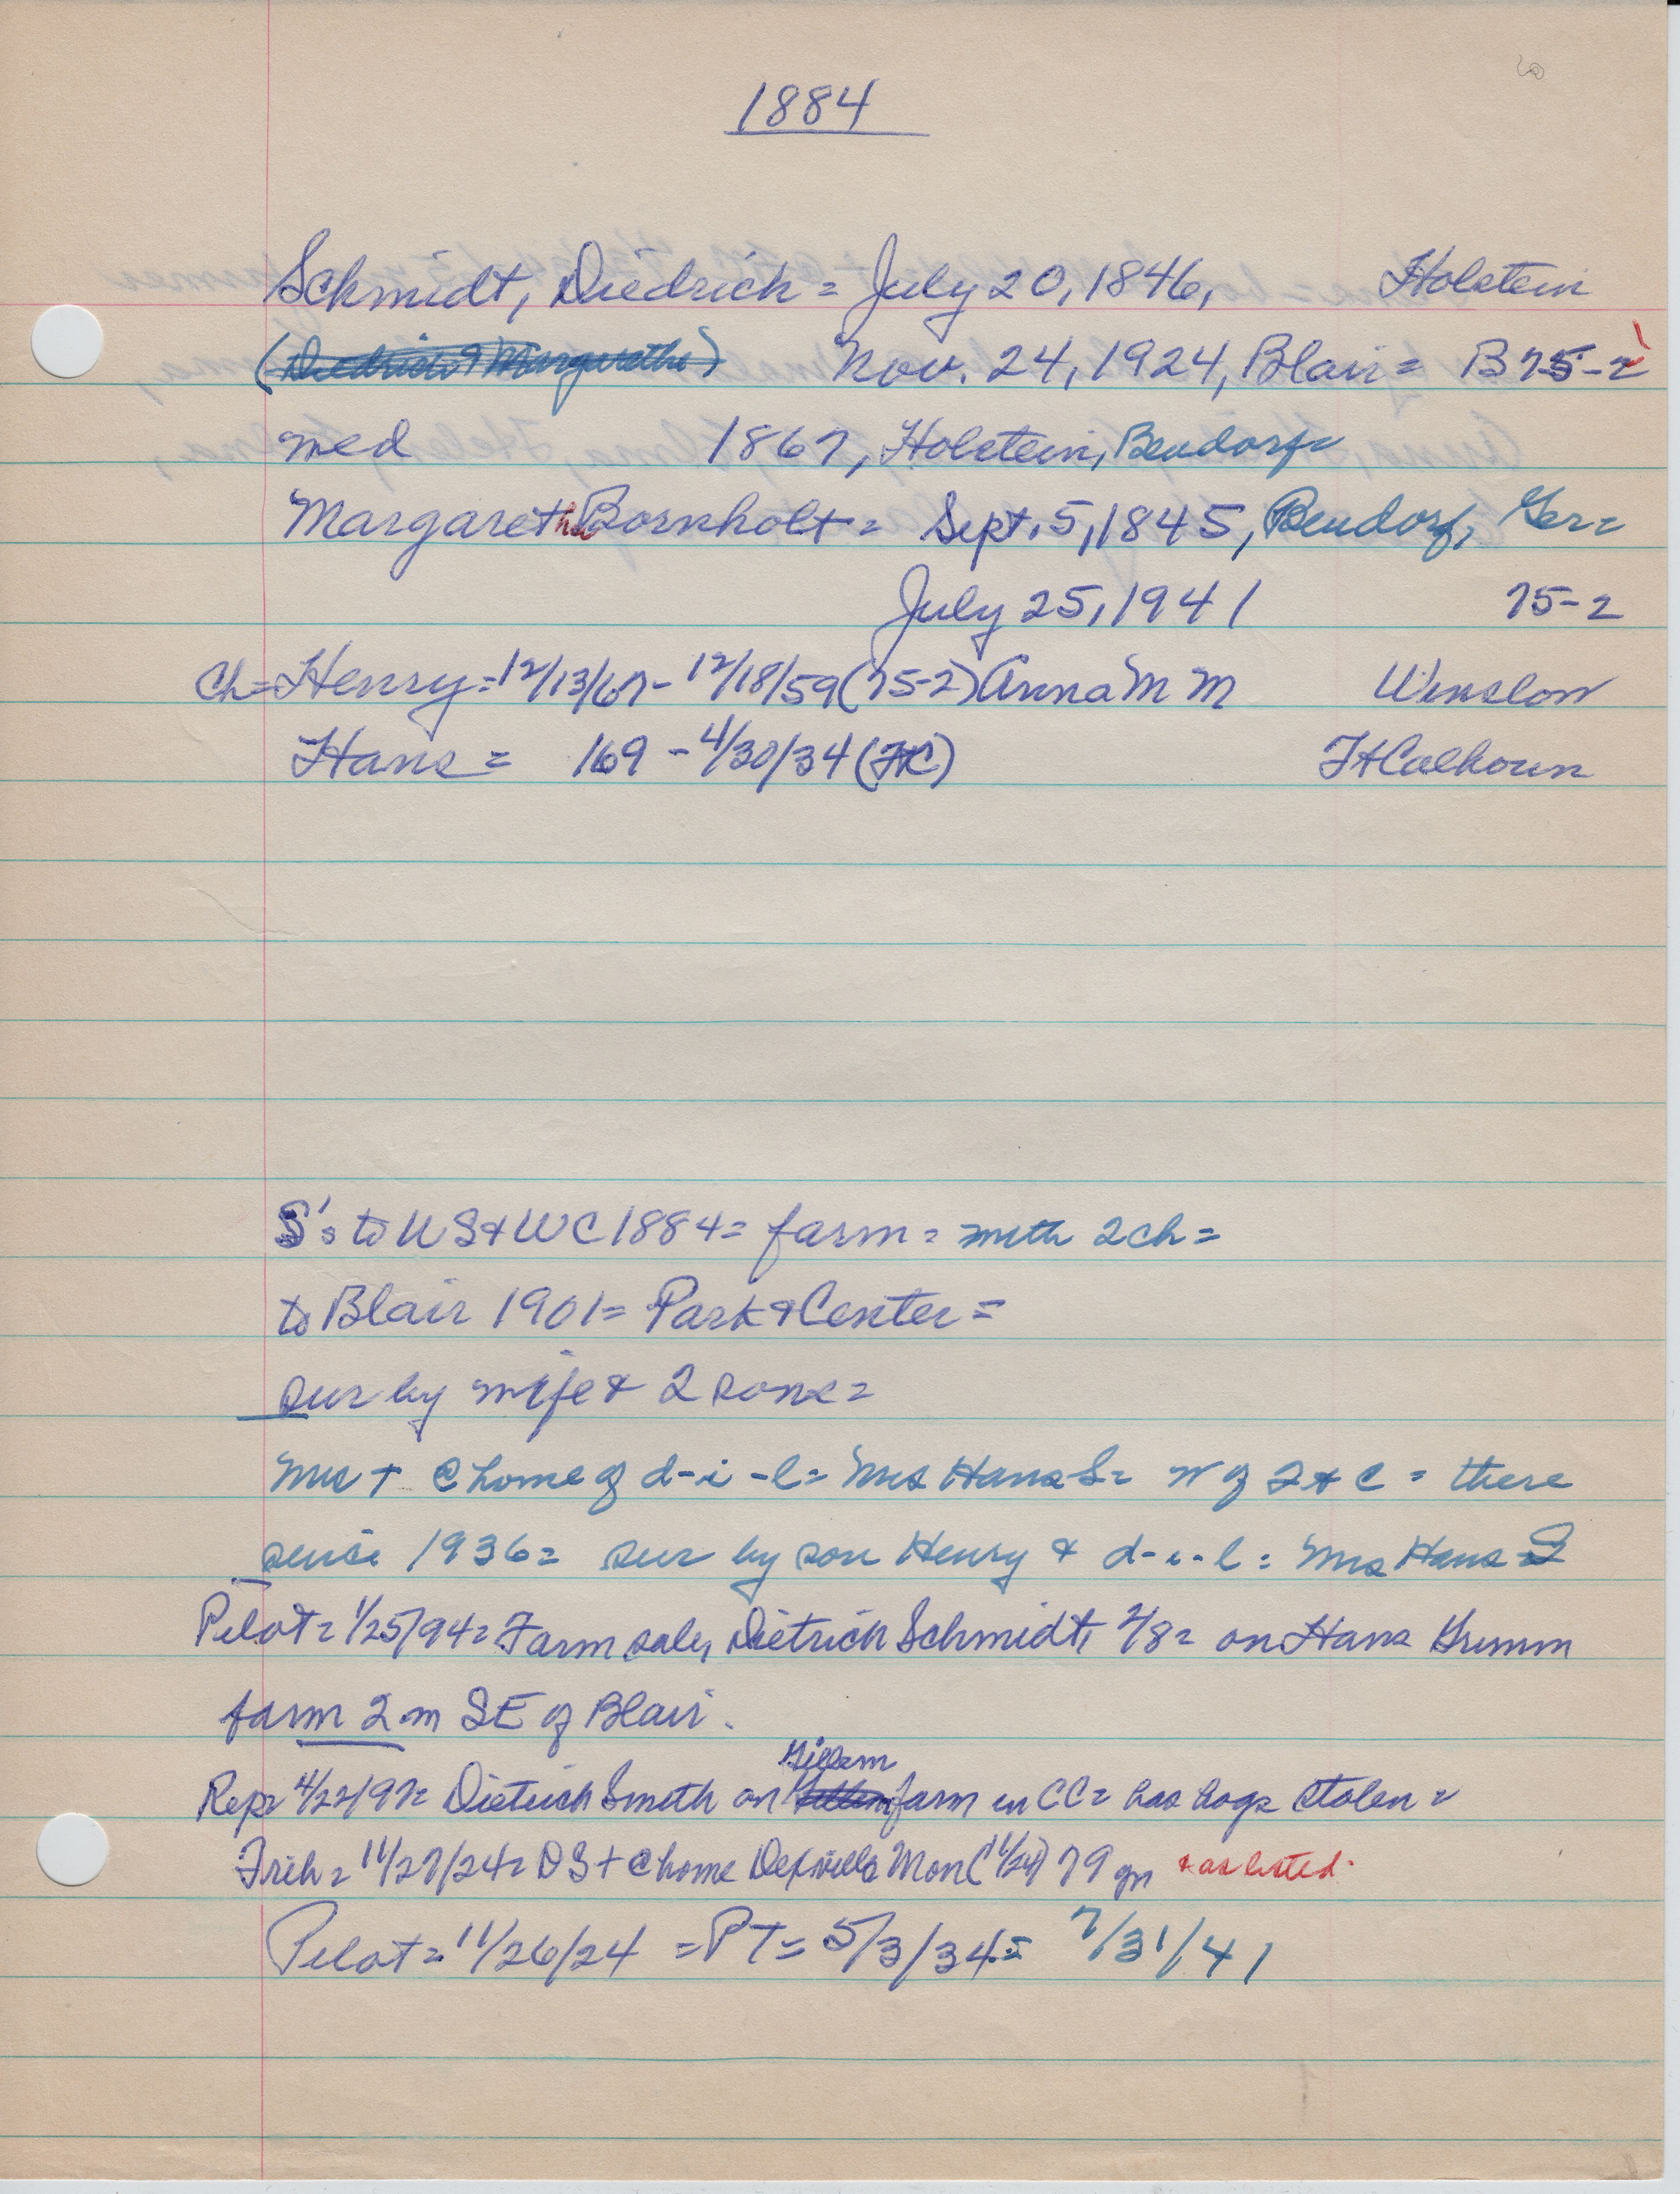 1884
Schmidt, Diedrich = July 20, 1846, Holstein
(Diedrich & Margarethe) Nov. 24, 1924, Blair = B 75-2
med 1867, Holstein, Bendorf =
Margarethe Bornholt = Sept. 5, 1845, Bendorf, Ger =
July 25, 1941 75-2
Ch = Henry = 12/13/67 - 12/18/59 (75-2) Anna M M Winslow
Hans = 169 - 4/30/34 (FtC) Ft Calhoun
S's to US & WC 1884 = farm = with 2 ch =
to Blair 1901 = Park & Center =
sur by wife & 2 sons =
Mrs + @ home of d-i-l = Mrs Hans S = W of Ft C = there
since 1936 = sur by son Henry & d-i-l = Mrs Hans S
Pilot = 1/25/94 = Farm sale, Dietrich Schmidt, 2/8 = on Hans Grimm
farm 2 m SE of Blair.
Rep = 4/22/97 = Dietrich Smith on Gillam farm in CC = has hogs stolen =
Trib = 11/27/24 = DS + @ home Mon (11/24) 79 yrs & as listed.
Pilot = 11/26/24 = PT = 5/3/34 = 7/31/41